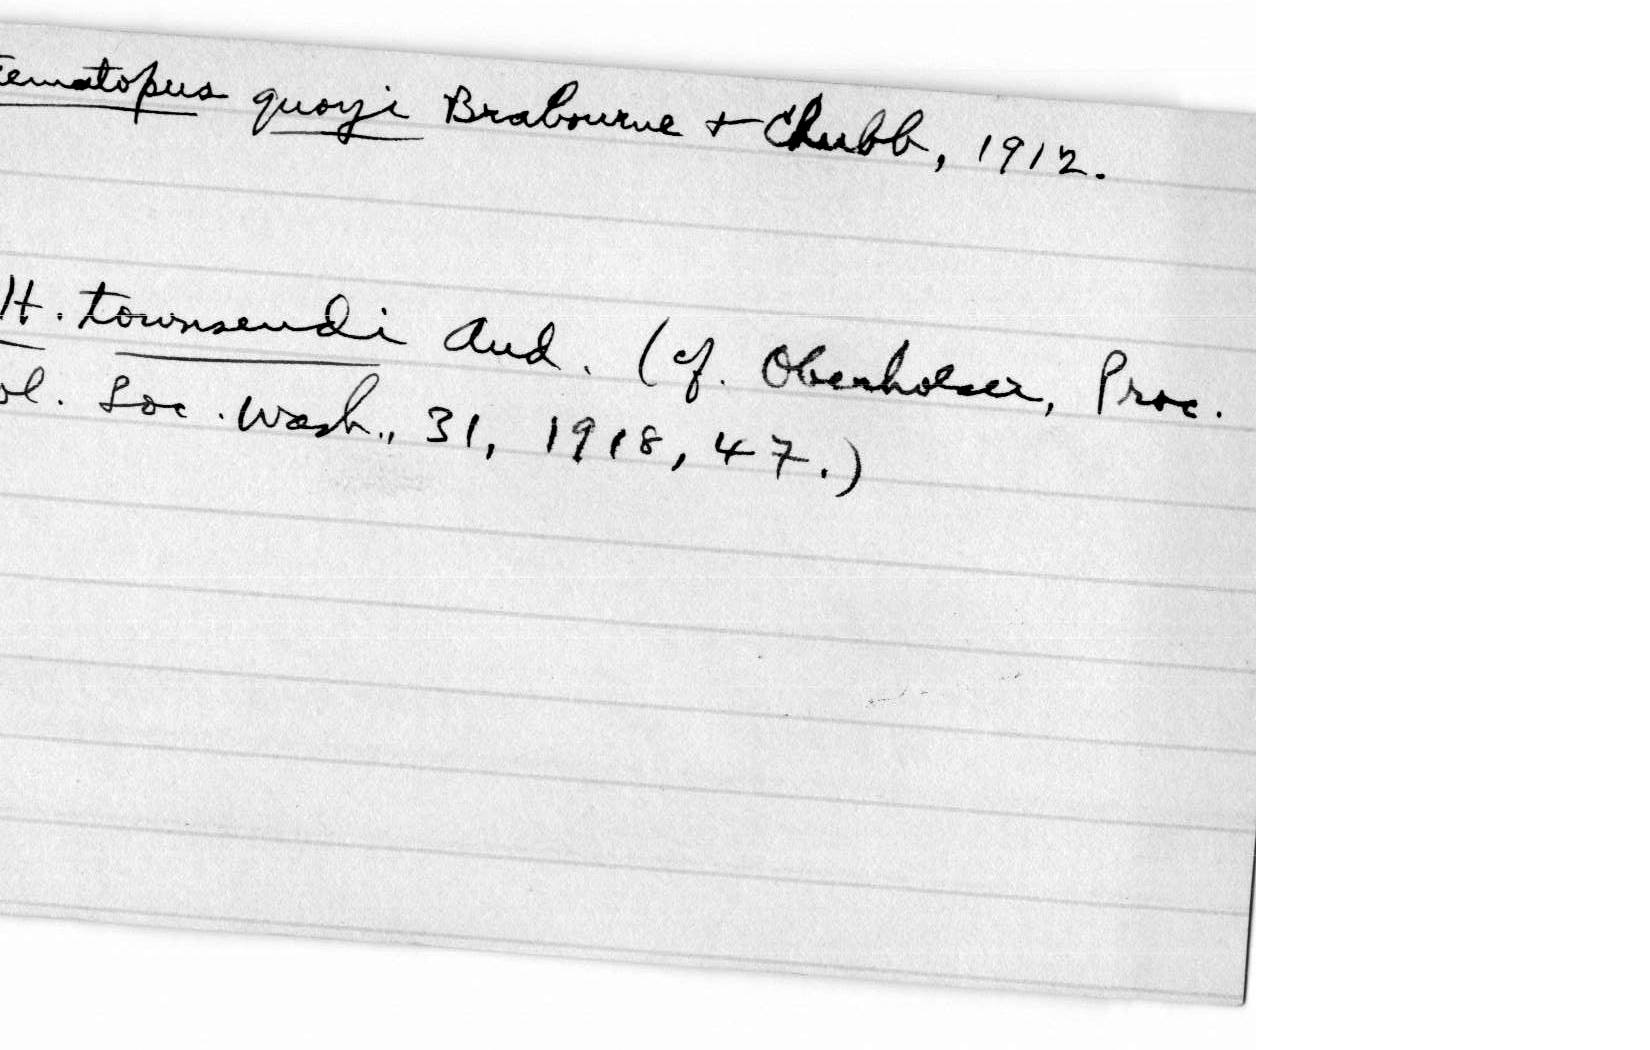 ematopus quoyi Brabourne + Chubb, 1912.
H. townsendi Aud. (cf. Oberholser, Proc.
ol. Soc. Wash., 31, 1918, 47.)